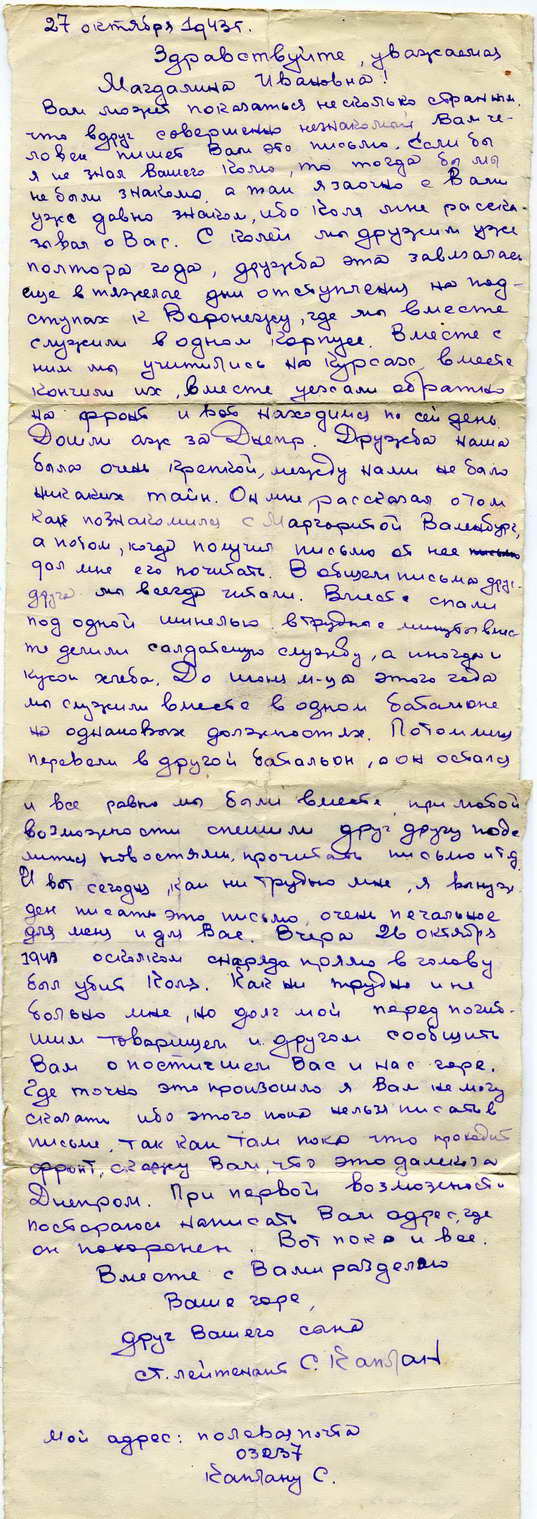 27 октября 1943 г.
Здравствуйте, уважаемая
Магдалина Ивановна!
Вам может показаться несколько странным,
что вдруг совершенно незнакомый Вам че-
ловек пишет Вам это письмо. Если бы
я не знал Вашего Колю, то тогда бы мы
не были знакомы, а так я заочно с Вами
уже давно знаком, ибо Коля мне расска-
зывал о Вас. С Колей мы дружим уже
полтора года, дружба эта завязалась
еще в тяжелые дни отступления на под-
ступах к Воронежу, где мы вместе
служили в одном корпусе. Вместе с
ним мы учились на курсах, вместе
кончили их, вместе уехали обратно
на фронт и вот находимся по сей день.
Дошли аж за Днепр. Дружба наша
была очень крепкой, между нами не было
никаких тайн. Он мне рассказал о том
как познакомился с Маргаритой Валенбург,
а потом, когда получил письмо от нее
дал мне его почитать. В общем письма друг
друга мы всегда читали. Вместе спали
под одной шинелью в трудные минуты вмес-
те делили солдатскую службу, а иногда и
кусок хлеба. До июня м-ца этого года
мы служили вместе в одном батальоне
на однановых должностях. Потом меня
перевели в другой батальон, а он остался
и все равно мы были вместе, при любой
возможности спешили друг другу поде
литься новостями, прочитать письмо и т.д.
И вот сегодня, как ни трудно мне, я вынуж-
ден писать это письмо, очень печальное
для меня и для Вас. Вчера 26 октября
1943 осколком снаряда прямо в голову
был убит Коля. Как ни трудно и не
больно мне, но долг мой перед погиб-
шим товарищем и другом сообщить
Вам о постигшем Вас и нас горе.
Где точно это произошло я Вам не могу
сказать ибо этого пока нельзя писать в
письме, так как там пока что проходит
фронт, скажу Вам, что это далеко за
Днепром. При первой возможности
постараюсь написать Вам адрес, где
он похоронен. Вот пока и все.
Вместе с Вами разделяю
Ваше горе,
друг Вашего сына
ст. лейтенант С. Каплан
Мой адрес: полевая почта
03237
Каплану С.